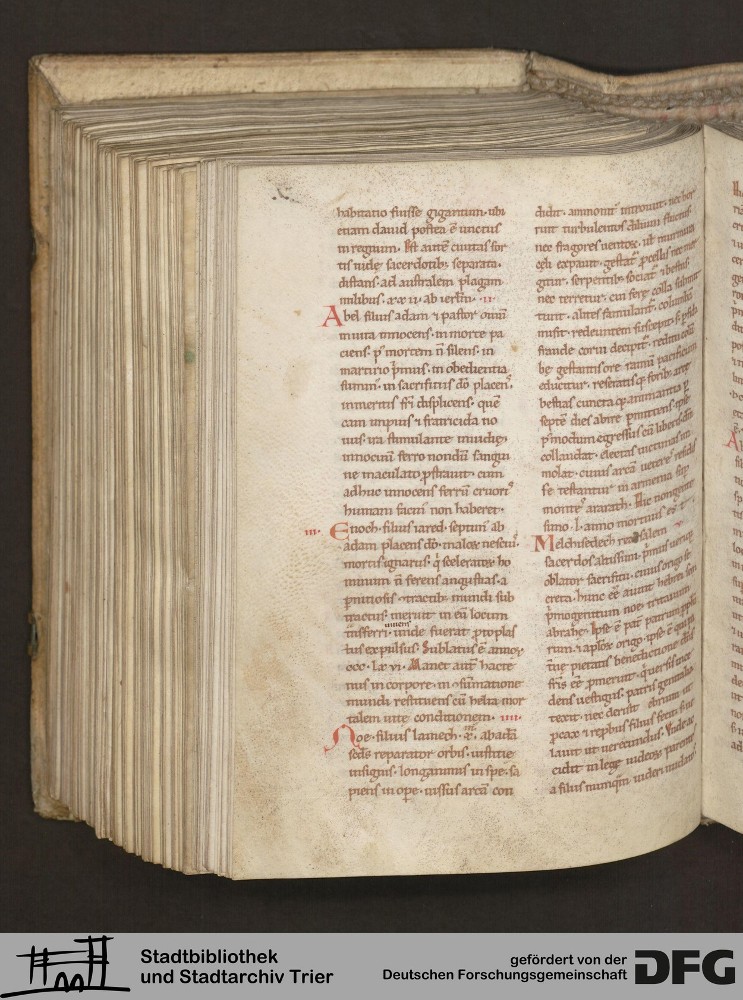 habitatio fuisse gigantum· ubi
etiam dauid postea ē unctus
in regnum. Est autē ciuitas for
tis uidelꝫ sacerdotibꝫ separata·
distans· ad australem plagam
milibus· xx ii· ab ierlm̄· ·ii·
Abel filius adam ⁊ pastor ouiū
multa innocens· in morte pa
ciens· p' mortem n̄ silens· in
martirio p̄mus· in obedientia
sūmus· in sacrificiis dō placens·
inmeritis frī displicens· quē
cain impius ⁊ fratricida no
uus· ira stimulante inuidię·
innocuum ferro nondū sangui
ne maculato p̄strauit· cum
adhuc innocens ferrū cruorē
humani sucui non haberet·
·iii· Enoch· filius iared· septim' ab
adam placens dō· malor nesciꝰ·
mortis ignarus· q̄ sceleratos ho
minum n̄ ferens angustias· a
pernitiosis ɔtractibꝫ mundi sub
tractus· meruit in eū locum
trāsferri· unde fuerat ꝓtoplas
tus expulsus· Sublatus ē annoꝝ
ccc· lx vi· Manet autē hacte
nus in corpore· in ɔsūmatione
mundi restituens cū helia mor
talem uite conditionem· ·iiii·
Noe· filius lamech· x· abadā
seds reparator orbis· iustitie
insignis· longanimis in spe· sa
piens in ope· iussus arcā con
didit· ammonit' introiuit· nec hor
ruit turbulentos diluuii fluctus·
nec fragores uentoꝝ· ut murmura
celi expauit· gestat' ꝓcellis nec mer
gitur· serpentibꝫ sociat' ⁊ bestiis
nec terretur· cui ferę colla submit
tunt· alites famulant'· columbā
misit· redeuntem suscepit· s; perfida
fraude corui decipit'· redit colū
be gestantis ore ramū pacificum
educitur· reseratisq; foribꝫ arcę
bestias cuncta q; animantia p
septē dies abire p̄mittens· ipse
p' modum egressus cū liberis dm̄
collaudat· electas uictimas im
molat· cuius arcā uetere residis
se testantur in armenia sup
montē ararath· Hic nongente
simo· l· anno mortuus est· v·
Melchisedech rex salem
sacerdos altissimi· p̄mus uerusq;
oblator sacrificii· cuius origo se
creta· hunc eē aiunt hebrei sem
p̄mogenitum noe· tritauum
abrahę· Ipse ē pat' patrum ꝓphe
rum ⁊ apl'oꝝ origo· ipse ē qui pa
t'ne pietatis benedictione
fr̄is eē ꝓmeruit· q̄ uersis ince
dens uestigiis· patris genitalia
texit· nec derisit ebrium ut
ꝓcax ⁊ reprobus filius fecit· s; ue
lauit ut uerecundus· Unde ac
cidit in lege iudeos· parente
a filiis nunquā uideri nudatū
Stadtbibliothek
und Stadtarchiv Trier
gefördert von der
Deutschen Forschungsgemeinschaft
DFG